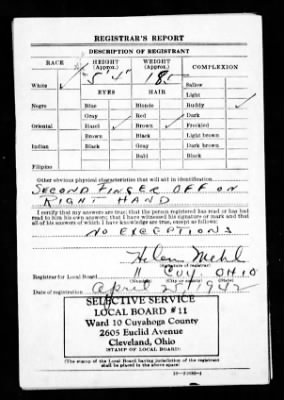 REGISTRAR'S REPORT
DESCRIPTION OF REGISTRANT
RACE HEIGHT (Approx.) WEIGHT (Approx.) COMPLEXION
5'4" 185
White ✓ Sallow
EYES HAIR Light
Negro Blue Blonde Ruddy ✓
Gray Red Dark
Oriental Hazel ✓ Brown ✓ Freckled
Brown Black Light brown
Indian Black Gray Dark brown
Bald Black
Filipino
Other obvious physical characteristics that will aid in identification
SECOND FINGER OFF ON
RIGHT HAND
I certify that my answers are true; that the person registered has read or has had
read to him his own answers; that I have witnessed his signature or mark and that
all of his answers of which I have knowledge are true, except as follows:
NO EXCEPTIONS
Helen Mehl
(Signature of registrar)
Registrar for Local Board 11 CUY. OHIO
(Number) (City or county) (State)
Date of registration April 25, 1942
SELECTIVE SERVICE
LOCAL BOARD #11
Ward 10 Cuyahoga County
2605 Euclid Avenue
Cleveland, Ohio
(STAMP OF LOCAL BOARD)
(The stamp of the Local Board having jurisdiction of the registrant
shall be placed in the above space)